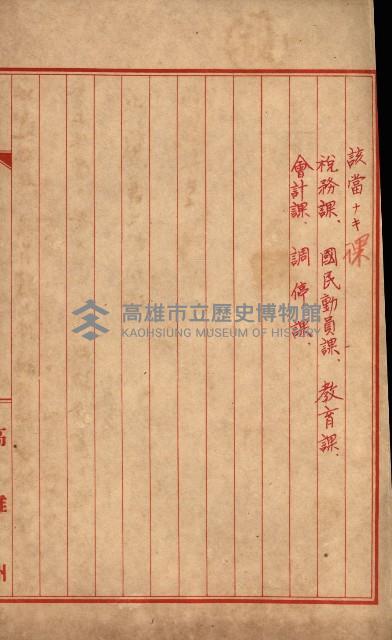 該當ナキ課
稅務課、國民動員課、教育課、
會計課、調停課、
高雄州
高雄市立歷史博物館
KAOHSIUNG MUSEUM OF HISTORY